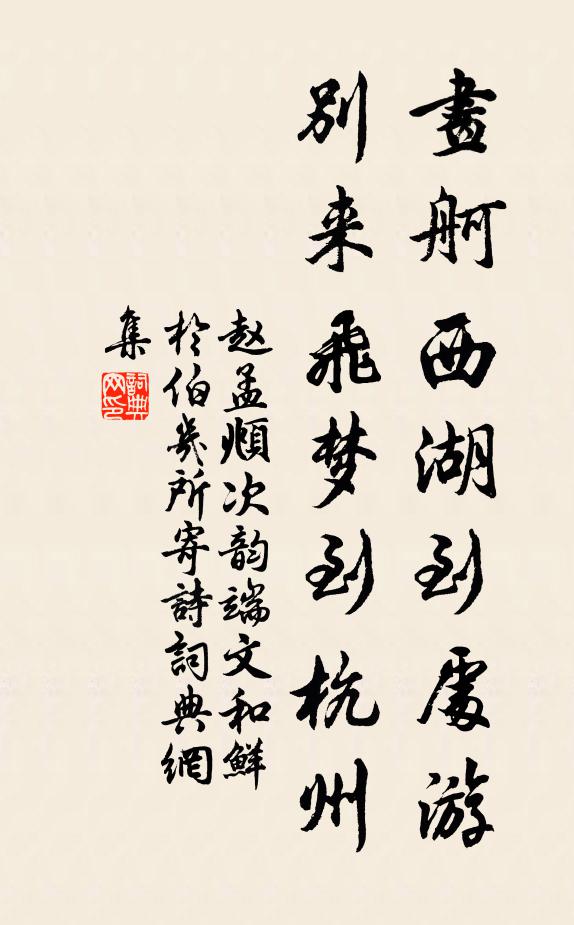 畫舸西湖到處游
別来飛梦到杭州
赵孟頫次韵端文和鮮
於伯幾所寄詩詞典網
集
詞典網印